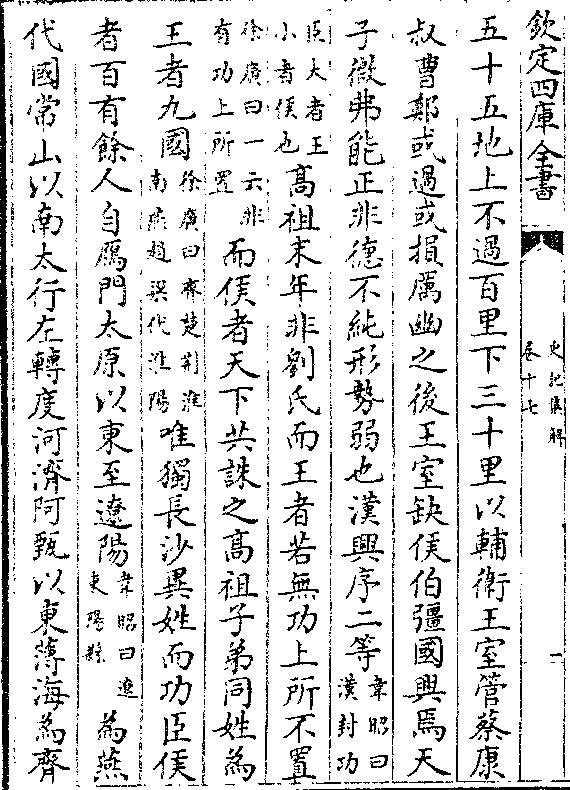 欽定四庫全書
史記集解
卷十七
一
五十五地上不過百里下三十里以輔衛王室管蔡康
叔曹鄭或過或損厲幽之後王室缺侯伯彊國興焉天
子微弗能正非德不純形勢弱也漢興序二等韋昭曰漢封功
臣大者王小者侯也高祖末年非劉氏而王者若無功上所不置
徐廣曰一云非有功上所置而侯者天下共誅之高祖子弟同姓為
王者九國徐廣曰齊楚荆淮南燕趙梁代淮陽唯獨長沙異姓而功臣侯
者百有餘人自厲門太原以東至遼陽韋昭曰遼東陽縣為燕
代國常山以南太行左轉度河濟阿甄以東薄海為齊